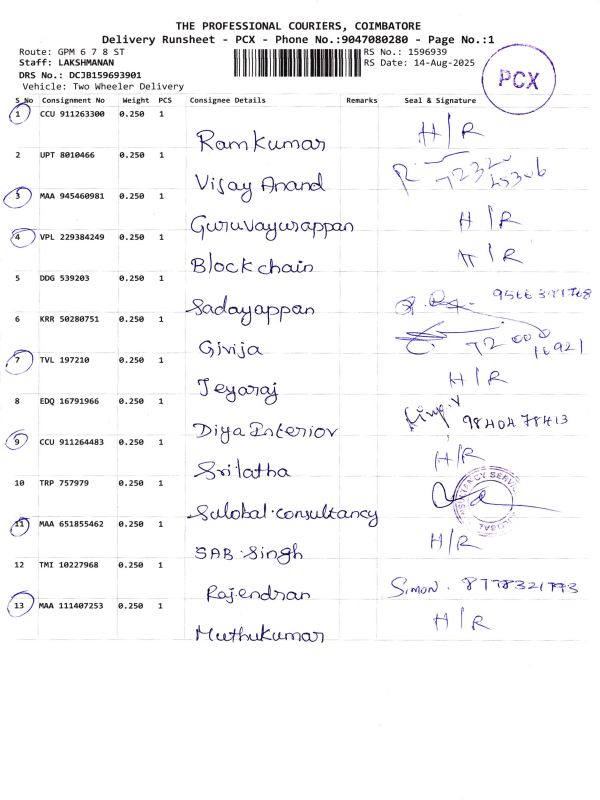 THE PROFESSIONAL COURIERS, COIMBATORE
Delivery Runsheet - PCX - Phone No.:9047080280 - Page No.:1
Route: GPM 6 7 8 ST RS No.: 1596939
Staff: LAKSHMANAN RS Date: 14-Aug-2025
DRS No.: DCJB159693901
Vehicle: Two Wheeler Delivery
PCX
S_No Consignment No Weight PCS Consignee Details Remarks Seal & Signature
1 CCU 911263300 0.250 1 Ramkumar H/R
2 UPT 8010466 0.250 1 Vijay Anand
3 MAA 945460981 0.250 1 Guruvayurappan H/R
4 VPL 229384249 0.250 1 Blockchain H/R
5 DDG 539203 0.250 1 Sadayappan
6 KRR 50280751 0.250 1 Givija 72000 16921
7 TVL 197210 0.250 1 Jeyaraj H/R
8 EDQ 16791966 0.250 1 Diya Interior 98404 78413
9 CCU 911264483 0.250 1 Srilatha H/R
10 TRP 757979 0.250 1 Sulobal.consultancy
11 MAA 651855462 0.250 1 SAB.Singh H/R
12 TMI 10227968 0.250 1 Rajendran Simon. 8778321793
13 MAA 111407253 0.250 1 Muthukumar H/R